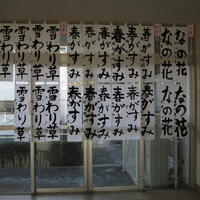 なの花
なの花
春がすみ
春がすみ
春がすみ
春がすみ
春がすみ
春がすみ
雪わり草
雪わり草
雪わり草
なの花
なの花
春がすみ
春がすみ
春がすみ
春がすみ
春がすみ
春がすみ
雪わり草
雪わり草
雪わり草